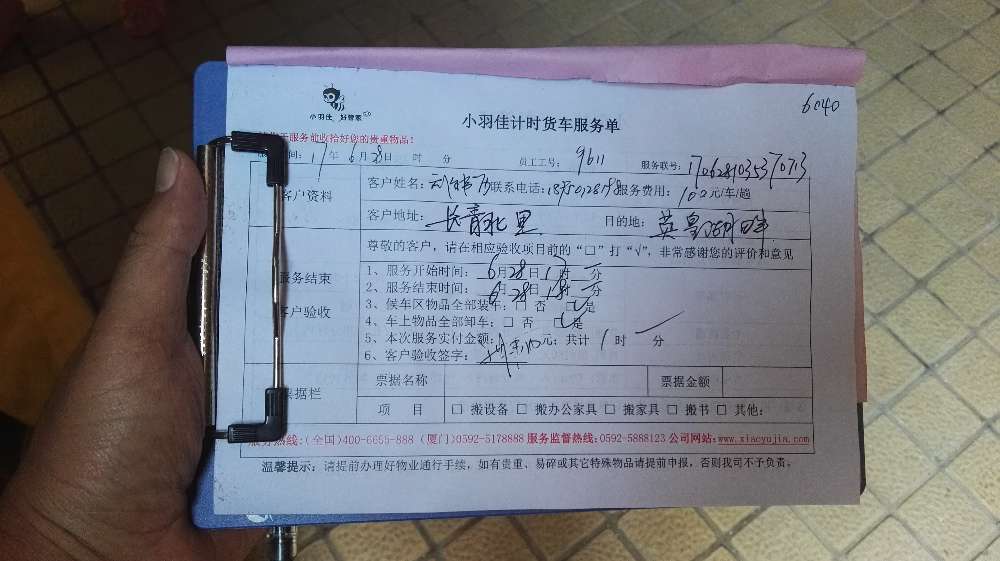 6040
小羽佳 好管家
小羽佳计时货车服务单
服务前收拾好您的贵重物品!
间: 17年6月28日 时 分 员工工号: 9611 服务联号: 1706281035370713
客户资料
客户姓名: 联系电话: 服务费用: 100元/车/趟
客户地址: 长青北里 目的地: 英皇湖畔
尊敬的客户，请在相应验收项目前的“□”打“√”，非常感谢您的评价和意见
服务结束
客户验收
1、服务开始时间: 6月28日17时 分
2、服务结束时间: 6月28日18时 分
3、候车区物品全部装车: □ 否 □ 是
4、车上物品全部卸车: □ 否 □ 是
5、本次服务实付金额: 元; 共计 1 时 分
6、客户验收签字:
票据栏
票据名称 票据金额
项 目 □ 搬设备 □ 搬办公家具 □ 搬家具 □ 搬书 □ 其他:
服务热线:(全国)400-6655-888 (厦门)0592-5178888 服务监督热线:0592-5888123 公司网站:www.xiaoyujia.com
温馨提示: 请提前办理好物业通行手续，如有贵重、易碎或其它特殊物品请提前申报，否则我司不予负责。